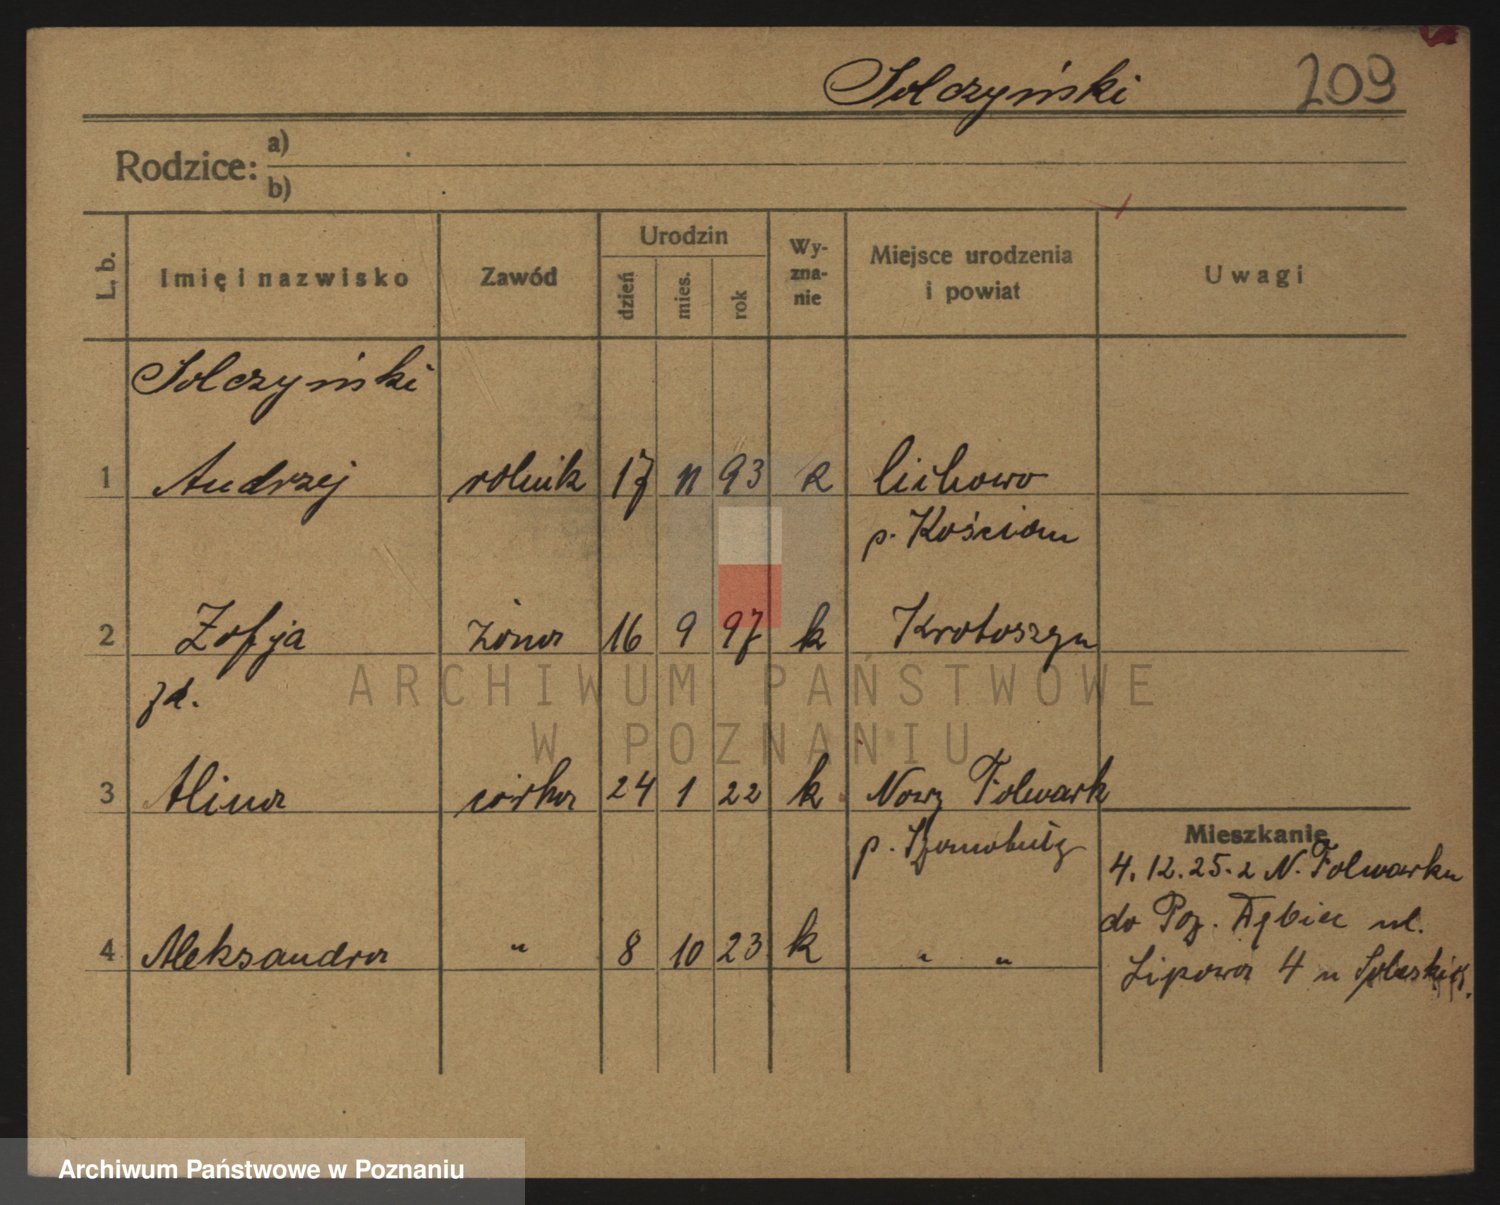 Solczyński 209
Rodzice: a)
b)
L. b. Imię i nazwisko Zawód Urodzin dzień mies. rok Wyzna-nie Miejsce urodzenia i powiat Uwagi
Solczyński
1 Andrzej rolnik 17 11 93 k Cichowo
p. Kościan
2 Zofja żona 16 9 97 k Krotoszyn
zd.
3 Alina córka 24 1 22 k Nowy Folwark
Mieszkanie
p.
4. 12. 25. z N. Folwarku
do Poz. Dębiec ul.
4 Aleksandra " 8 10 23 k " "
Lipowa 4 u
ARCHIWUM PAŃSTWOWE
W POZNANIU
Archiwum Państwowe w Poznaniu